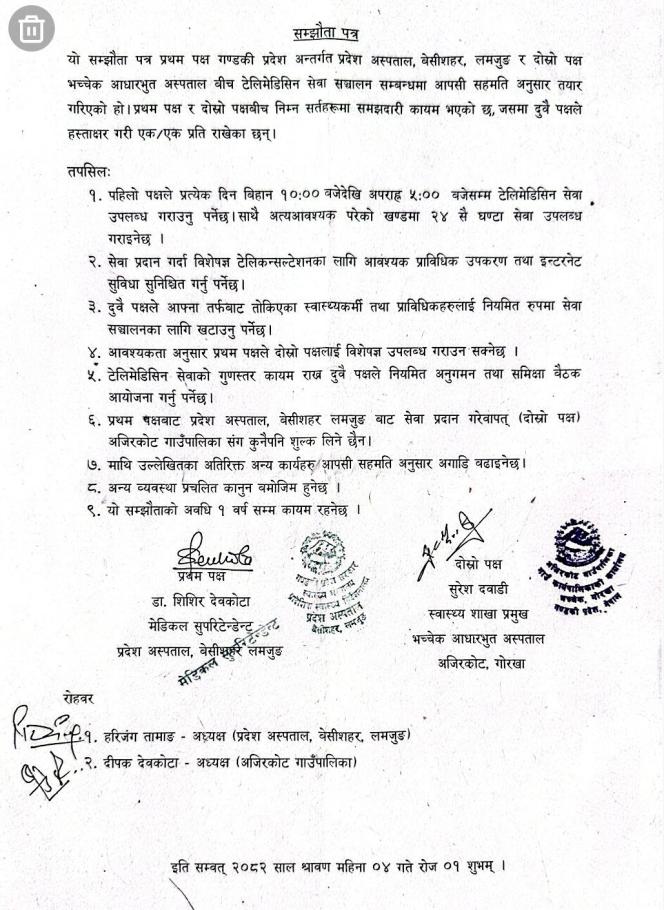 सम्झौता पत्र
यो सम्झौता पत्र प्रथम पक्ष गण्डकी प्रदेश अन्तर्गत प्रदेश अस्पताल, बेसीशहर, लमजुङ र दोस्रो पक्ष
भच्चेक आधारभुत अस्पताल वीच टेलिमेडिसिन सेवा सञ्चालन सम्बन्धमा आपसी सहमति अनुसार तयार
गरिएको हो।प्रथम पक्ष र दोस्रो पक्षबीच निम्न सर्तहरूमा समझदारी कायम भएको छ, जसमा दुवै पक्षले
हस्ताक्षर गरी एक/एक प्रति राखेका छन्।
तपसिलः
१. पहिलो पक्षले प्रत्येक दिन बिहान १०:०० बजेदेखि अपराह्न ५:०० बजेसम्म टेलिमेडिसिन सेवा
उपलब्ध गराउनु पर्नेछ।साथै अत्यआवश्यक परेको खण्डमा २४ सै घण्टा सेवा उपलब्ध
गराइनेछ ।
२. सेवा प्रदान गर्दा विशेषज्ञ टेलिकन्सल्टेशनका लागि आवश्यक प्राविधिक उपकरण तथा इन्टरनेट
सुविधा सुनिश्चित गर्नु पर्नेछ।
३. दुवै पक्षले आफ्ना तर्फबाट तोकिएका स्वास्थ्यकर्मी तथा प्राविधिकहरुलाई नियमित रुपमा सेवा
सञ्चालनका लागि खटाउनु पर्नेछ।
४. आवश्यकता अनुसार प्रथम पक्षले दोस्रो पक्षलाई विशेषज्ञ उपलब्ध गराउन सक्नेछ ।
५. टेलिमेडिसिन सेवाको गुणस्तर कायम राख्न दुवै पक्षले नियमित अनुगमन तथा समिक्षा बैठक
आयोजना गर्नु पर्नेछ।
६. प्रथम पक्षबाट प्रदेश अस्पताल, बेसीशहर लमजुङ बाट सेवा प्रदान गरेवापत् (दोस्रो पक्ष)
अजिरकोट गाउँपालिका संग कुनैपनि शुल्क लिने छैन।
७. माथि उल्लेखितका अतिरिक्त अन्य कार्यहरु आपसी सहमति अनुसार अगाडि वढाइनेछ।
८. अन्य व्यवस्था प्रचलित कानुन वमोजिम हुनेछ ।
९. यो सम्झौताको अवधि १ वर्ष सम्म कायम रहनेछ ।
प्रथम पक्ष
डा. शिशिर देवकोटा
मेडिकल सुपरिटेन्डेन्ट
प्रदेश अस्पताल, बेसीशहर लमजुङ
मेडिकल सुपरिटेन्डेन्ट
प्रदेश अस्पताल
बेसीशहर, लमजुङ
दोस्रो पक्ष
सुरेश दवाडी
स्वास्थ्य शाखा प्रमुख
भच्चेक आधारभुत अस्पताल
अजिरकोट, गोरखा
अजिरकोट गाउँपालिका
गाउँ कार्यपालिकाको कार्यालय
भच्चेक, गोरखा
गण्डकी प्रदेश, नेपाल
रोहवर
१. हरिजंग तामाङ - अध्यक्ष (प्रदेश अस्पताल, वेसीशहर, लमजुङ)
२. दीपक देवकोटा - अध्यक्ष (अजिरकोट गाउँपालिका)
इति सम्वत् २०८२ साल श्रावण महिना ०४ गते रोज ०१ शुभम् ।